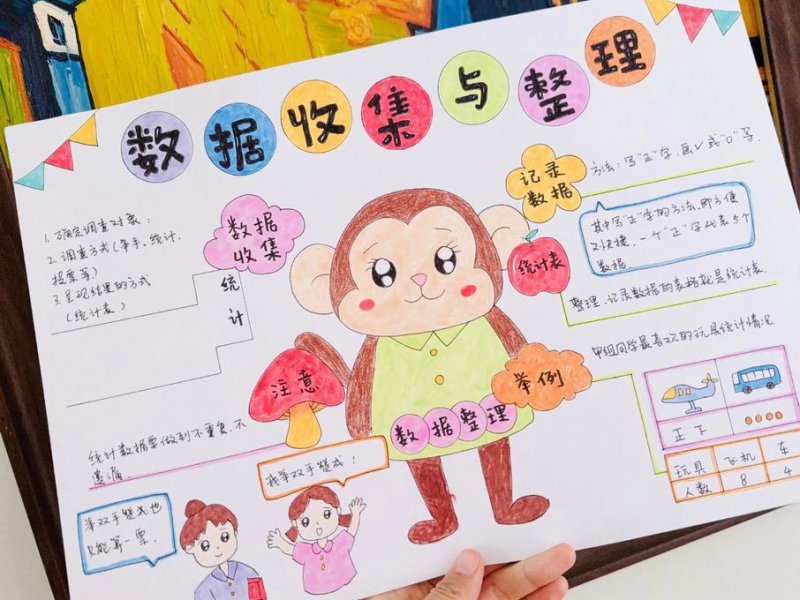 数据收集与整理
数据
收集
1. 确定调查对象：
2. 调查方式（举手、统计、
投票等）
3. 呈现结果的方式
（统计表）
统
计
记录
数据
方法：写“正”字，画√或“○”等.
其中写“正”字的方法，即方便
又快捷，一个“正”字代表5个
数据
统计表
整理、记录数据的表格就是统计表
举例
甲组同学最喜欢的玩具统计情况
正下
玩具 飞机 车
人数 8 4
注意
统计数据要做到不重复、不
遗漏.
数据整理
我举双手赞成！
举双手赞成也
只能算一票.